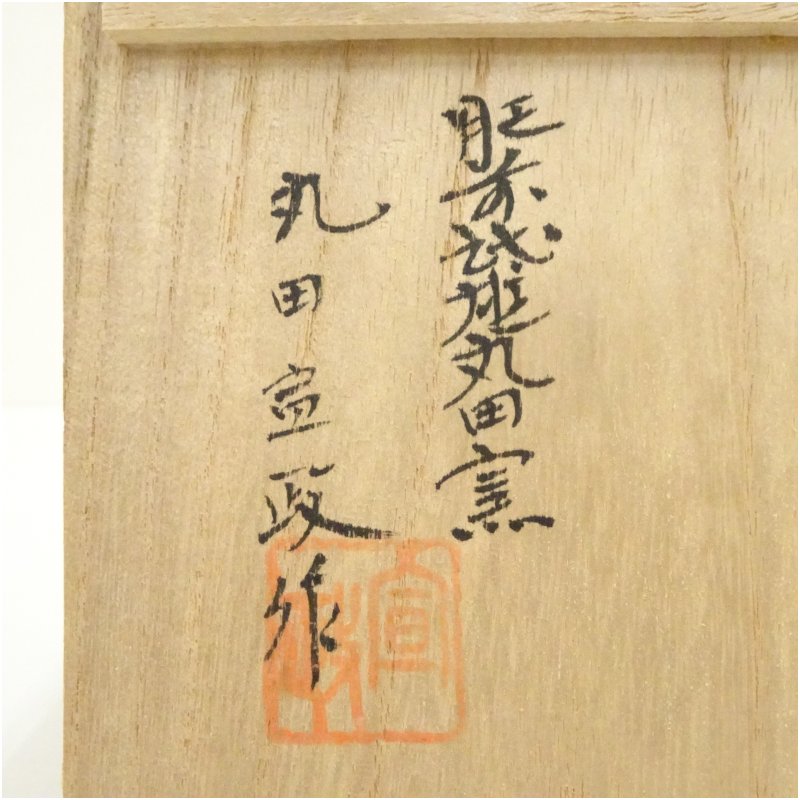 肥前武雄丸田窯
丸田宣政作
宣政